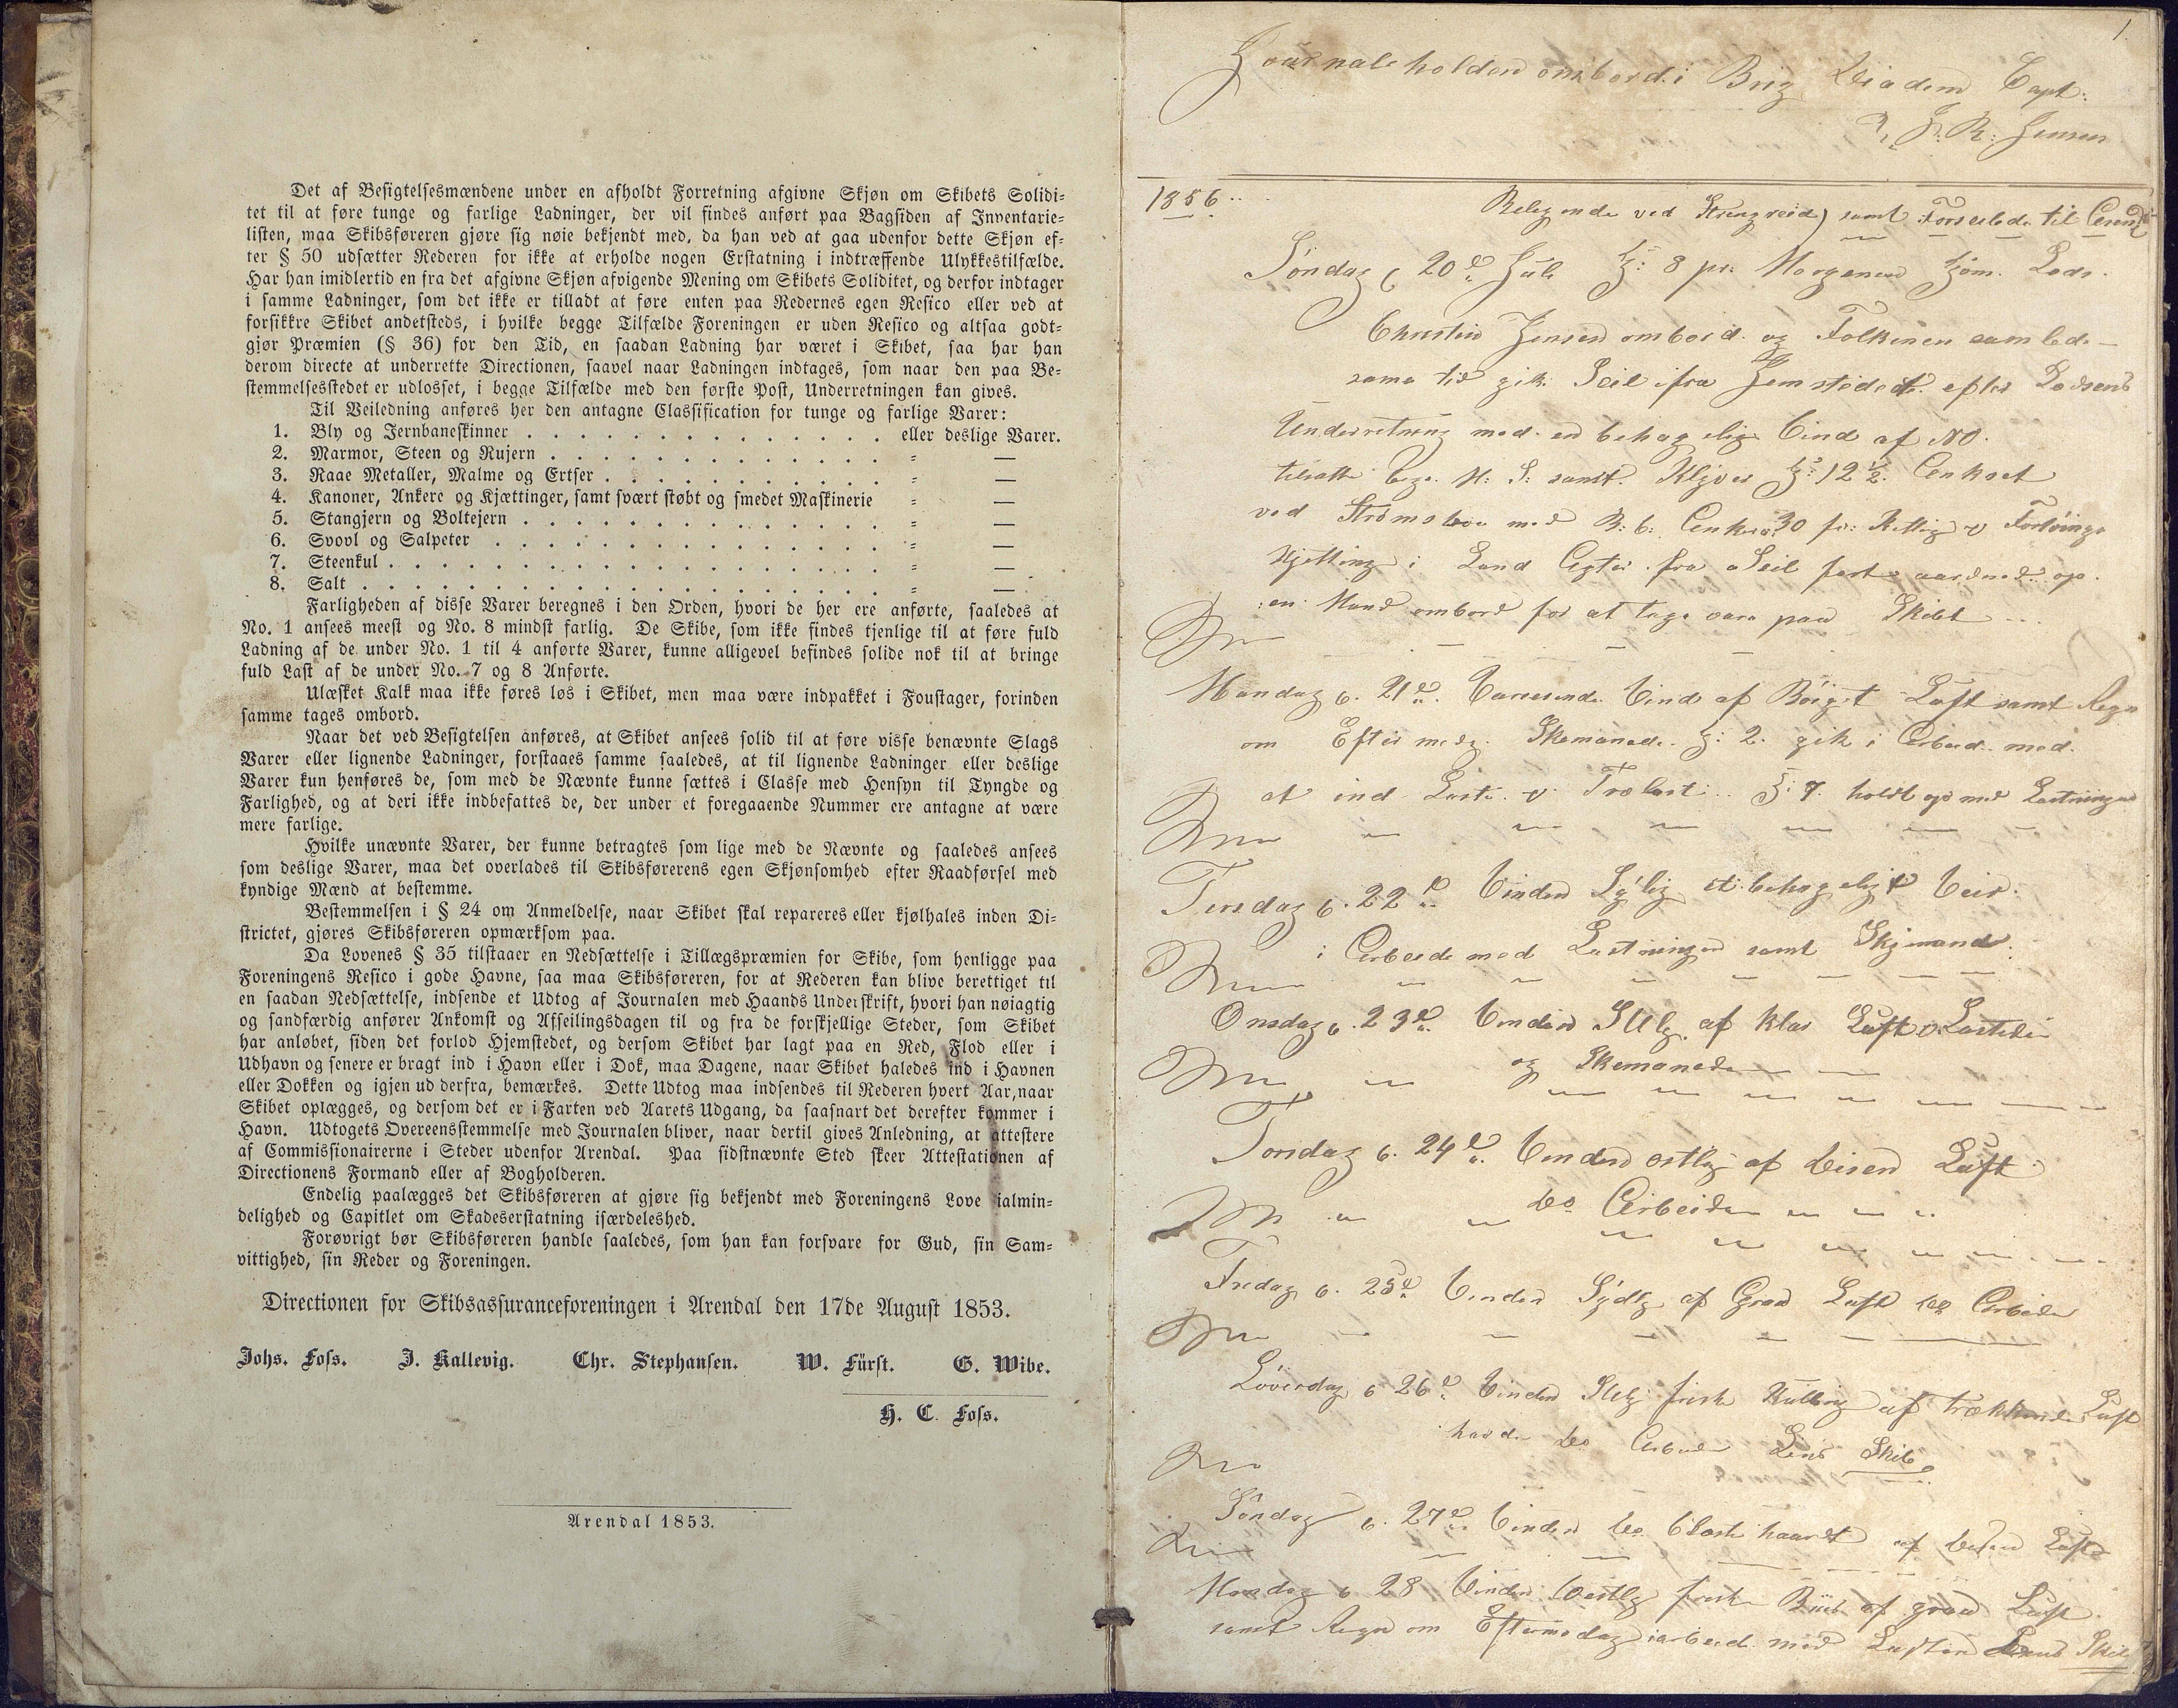 Det af Besigtelsesmændene under en afholdt Forretning afgivne Skjøn om Skibets Solidi-
tet til at føre tunge og farlige Ladninger, der vil findes anført paa Bagsiden af Inventarie-
listen, maa Skibsføreren gjøre sig nøie bekjendt med, da han ved at gaa udenfor dette Skjøn ef-
ter § 50 udsætter Rederen for ikke at erholde nogen Erstatning i indtræffende Ulykkestilfælde.
Har han imidlertid en fra det afgivne Skjøn afvigende Mening om Skibets Soliditet, og derfor indtager
i samme Ladninger, som det ikke er tilladt at føre enten paa Redernes egen Resico eller ved at
forsikkre Skibet andetsteds, i hvilke begge Tilfælde Foreningen er uden Resico og altsaa godt-
gjør Præmien (§ 36) for den Tid, en saadan Ladning har været i Skibet, saa har han
derom directe at underrette Directionen, saavel naar Ladningen indtages, som naar den paa Be-
stemmelsesstedet er udlosset, i begge Tilfælde med den første Post, Underretningen kan gives.
Til Veiledning anføres her den antagne Classification for tunge og farlige Varer:
1. Bly og Jernbaneskinner . . . . . . . . . . . . . eller deslige Varer.
2. Marmor, Steen og Rujern . . . . . . . . . . . . = —
3. Raae Metaller, Malme og Ertser . . . . . . . . . . = —
4. Kanoner, Ankere og Kjættinger, samt svært støbt og smedet Maskinerie = —
5. Stangjern og Boltejern . . . . . . . . . . . . . = —
6. Svovl og Salpeter . . . . . . . . . . . . . . = —
7. Steenkul . . . . . . . . . . . . . . . . . = —
8. Salt . . . . . . . . . . . . . . . . . . = —
Farligheden af disse Varer beregnes i den Orden, hvori de her ere anførte, saaledes at
No. 1 ansees meest og No. 8 mindst farlig. De Skibe, som ikke findes tjenlige til at føre fuld
Ladning af de under No. 1 til 4 anførte Varer, kunne alligevel befindes solide nok til at bringe
fuld Last af de under No. 7 og 8 Anførte.
Ulæsket Kalk maa ikke føres løs i Skibet, men maa være indpakket i Foustager, forinden
samme tages ombord.
Naar det ved Besigtelsen anføres, at Skibet ansees solid til at føre visse benævnte Slags
Varer eller lignende Ladninger, forstaaes samme saaledes, at til lignende Ladninger eller deslige
Varer kun henføres de, som med de Nævnte kunne sættes i Classe med Hensyn til Tyngde og
Farlighed, og at deri ikke indbefattes de, der under et foregaaende Nummer ere antagne at være
mere farlige.
Hvilke unævnte Varer, der kunne betragtes som lige med de Nævnte og saaledes ansees
som deslige Varer, maa det overlades til Skibsførerens egen Skjønsomhed efter Raadførsel med
kyndige Mænd at bestemme.
Bestemmelsen i § 24 om Anmeldelse, naar Skibet skal repareres eller kjølhales inden Di-
strictet, gjøres Skibsføreren opmærksom paa.
Da Lovenes § 35 tilstaaer en Nedsættelse i Tillægspræmien for Skibe, som henligge paa
Foreningens Resico i gode Havne, saa maa Skibsføreren, for at Rederen kan blive berettiget til
en saadan Nedsættelse, indsende et Udtog af Journalen med Haands Underskrift, hvori han nøiagtig
og sandfærdig anfører Ankomst og Afseilingsdagen til og fra de forskjellige Steder, som Skibet
har anløbet, siden det forlod Hjemstedet, og dersom Skibet har lagt paa en Red, Flod eller i
Udhavn og senere er bragt ind i Havn eller i Dok, maa Dagene, naar Skibet haledes ind i Havnen
eller Dokken og igjen ud derfra, bemærkes. Dette Udtog maa indsendes til Rederen hvert Aar, naar
Skibet oplægges, og dersom det er i Farten ved Aarets Udgang, da saasnart det derefter kommer i
Havn. Udtogets Overeensstemmelse med Journalen bliver, naar dertil gives Anledning, at attestere
af Commissionairerne i Steder udenfor Arendal. Paa sidstnævnte Sted skeer Attestationen af
Directionens Formand eller af Bogholderen.
Endelig paalægges det Skibsføreren at gjøre sig bekjendt med Foreningens Love ialmin-
delighed og Capitlet om Skadeserstatning isærdeleshed.
Forøvrigt bør Skibsføreren handle saaledes, som han kan forsvare for Gud, sin Sam-
vittighed, sin Reder og Foreningen.
Directionen for Skibsassuranceforeningen i Arendal den 17de August 1853.
Johs. Foss. J. Kallevig. Chr. Stephansen. W. Fürst. G. Wibe.
H. C. Foss.
Arendal 1853.
1
Journale holden ombord i Brig Diadem Capt:
J: R: Jensen
1856
Beligende ved Strengreid) samt Forseilede til
Søndag d 20de Juli Kl: 8 pr: Morgenen kom Lods
Christen Jensen ombord og Folkenen samlede
same tid gik Seil ifra Hemstedet efter Lodsens
Underretning med en behagelig Vind af NO.
tilsatte M: S: samt Klyver Kl: 12 ½ Ankret
ved Strømsboe med B: b: Anker 30 fv: Ketting Fortöings
Kjetting i Land Agter fra Seil fast
en Mand ombord for at tage vare paa Skibet
Mandag d. 21de. Varierende Vind af Böiget Luft samt Regn
om Eftermedg. Skemanede Kl: 2 gik i Arbeid med
at ind Laste Trælast Kl: 7 holdt op med Lastningen
Tirsdag d. 22de Vinden Sylig et behageligt Veir:
i Arbeide med Lastningen samt Skjmand
Onsdag d. 23de Vinden SVlg. af klar Luft
og Skemanede
Torsdag d. 24de. Vinden ostlig af Disen Luft
do Arbeide
Fredag d. 25de Vinden Sydlg af Graa Luft do Arbeide
Löverdag d 26de Vinden SVlg frisk Kulling af trækkende Luft
havde do Arbeide Lens Skib
Söndag d. 27de. Vinden do blæste haardt af Disen Luft
Mandag d 28 Vinden Vestlg frisk af graa Luft
samt Regn om Eftermedag i arbeid med Lasten Lens Skib